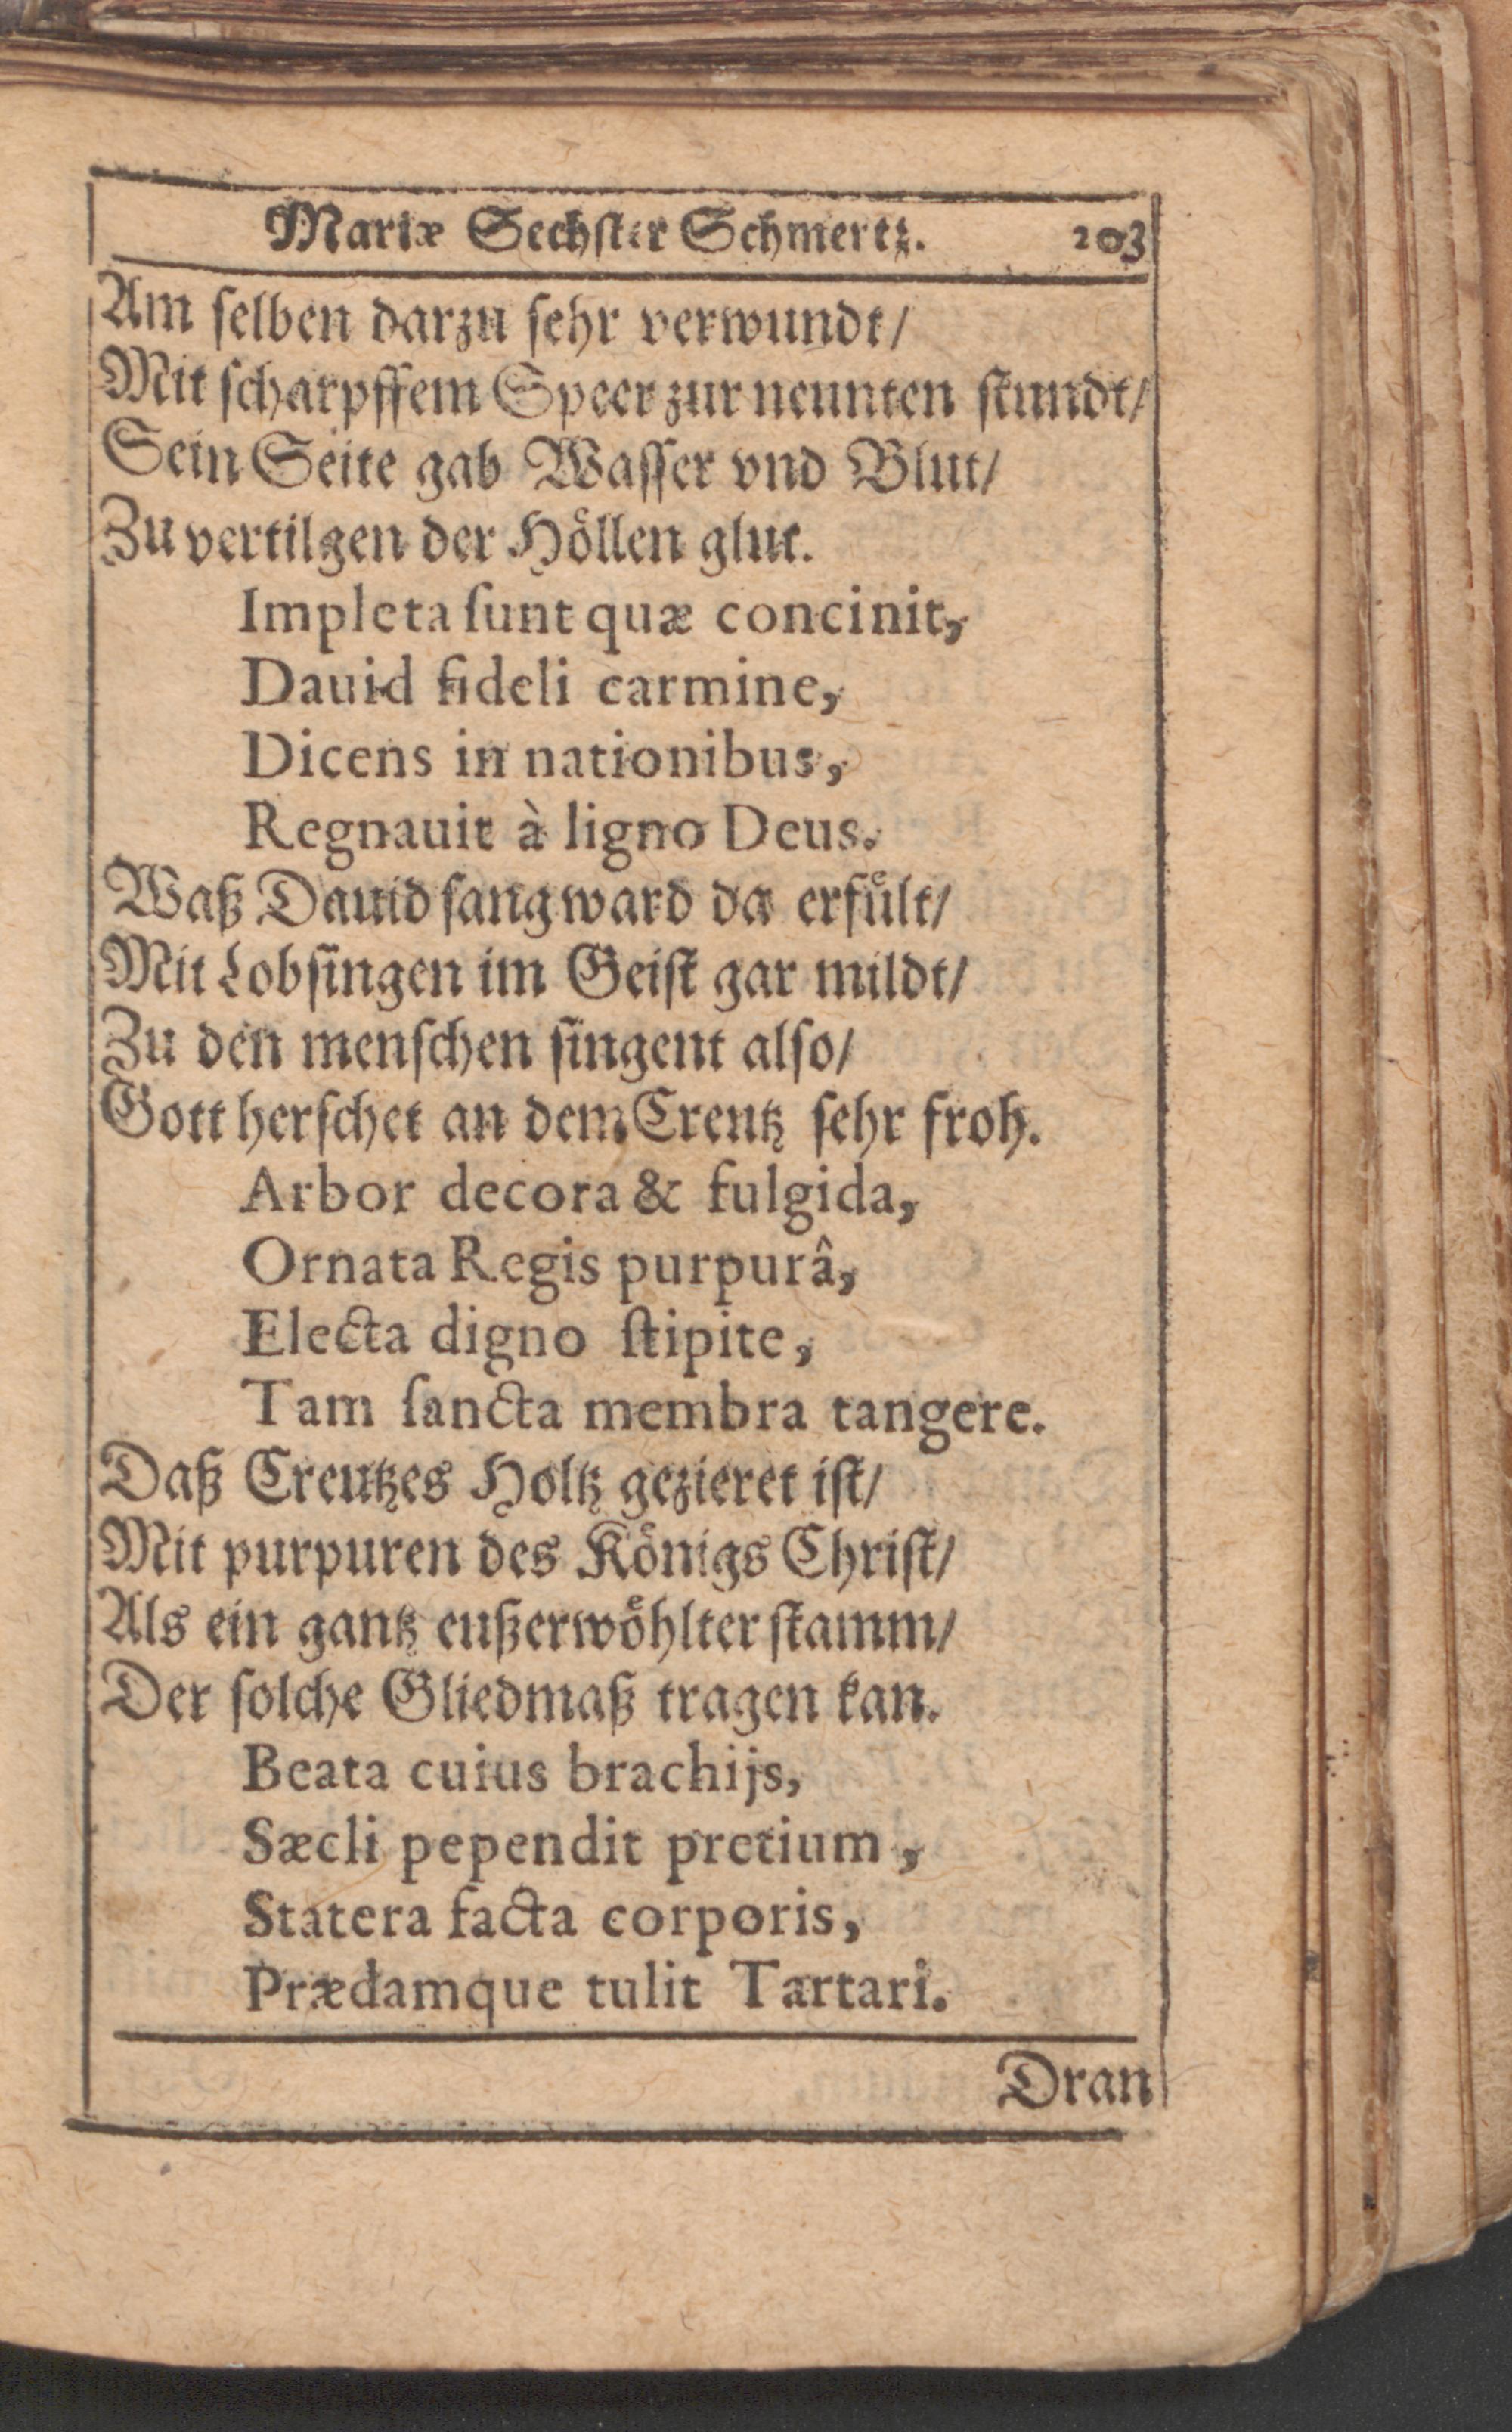 Mariæ Sechſter Schmertz. 203
Am ſelben darzu ſehr verwundt/
Mit ſcharpffem Speer zur neunten ſtundt/
Sein Seite gab Waſſer vnd Blut/
Zu vertilgen der Hoͤllen glut.
Impleta ſunt quæ concinit,
Dauid fideli carmine,
Dicens in nationibus,
Regnauit à ligno Deus.
Waß Dauid ſang ward da erfuͤlt/
Mit Lobſingen im Geiſt gar mildt/
Zu den menſchen ſingent alſo/
Gott herſchet an dem Creutz ſehr froh.
Arbor decora & fulgida,
Ornata Regis purpurâ,
Electa digno ſtipite,
Tam ſancta membra tangere.
Daß Creutzes Holtz gezieret iſt/
Mit purpuren des Koͤnigs Chriſt/
Als ein gantz eußerwoͤhlter ſtamm/
Der ſolche Gliedmaß tragen kan.
Beata cuius brachijs,
Sæcli pependit pretium,
Statera facta corporis,
Prædamque tulit Tartari.
Dran